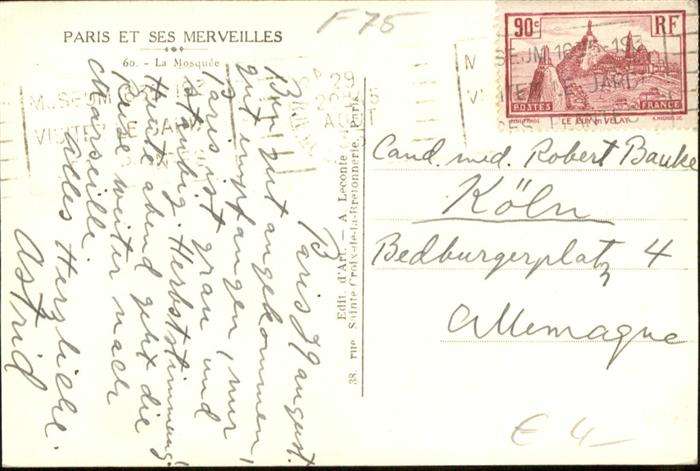 F75
PARIS ET SES MERVEILLES
60. - La Mosquée
90c RF
POSTES FRANCE
LE PUY en VELAY
MUSEUM
29
AOUT
Paris 29 august.
Bin gut angekommen,
gut empfangen, nur
Paris ist grau und
staubig. Herbststimmung!
Heute abend geht die
Reise weiter nach
Marseille
Alles Herzliche.
Astrid
Edit. d'Art. — A. Leconte
38, rue Sainte-Croix-de-la-Bretonnerie, Paris
Cand. med. Robert Bauke
Köln
Bedburgerplatz 4
Allemagne
€ 4-